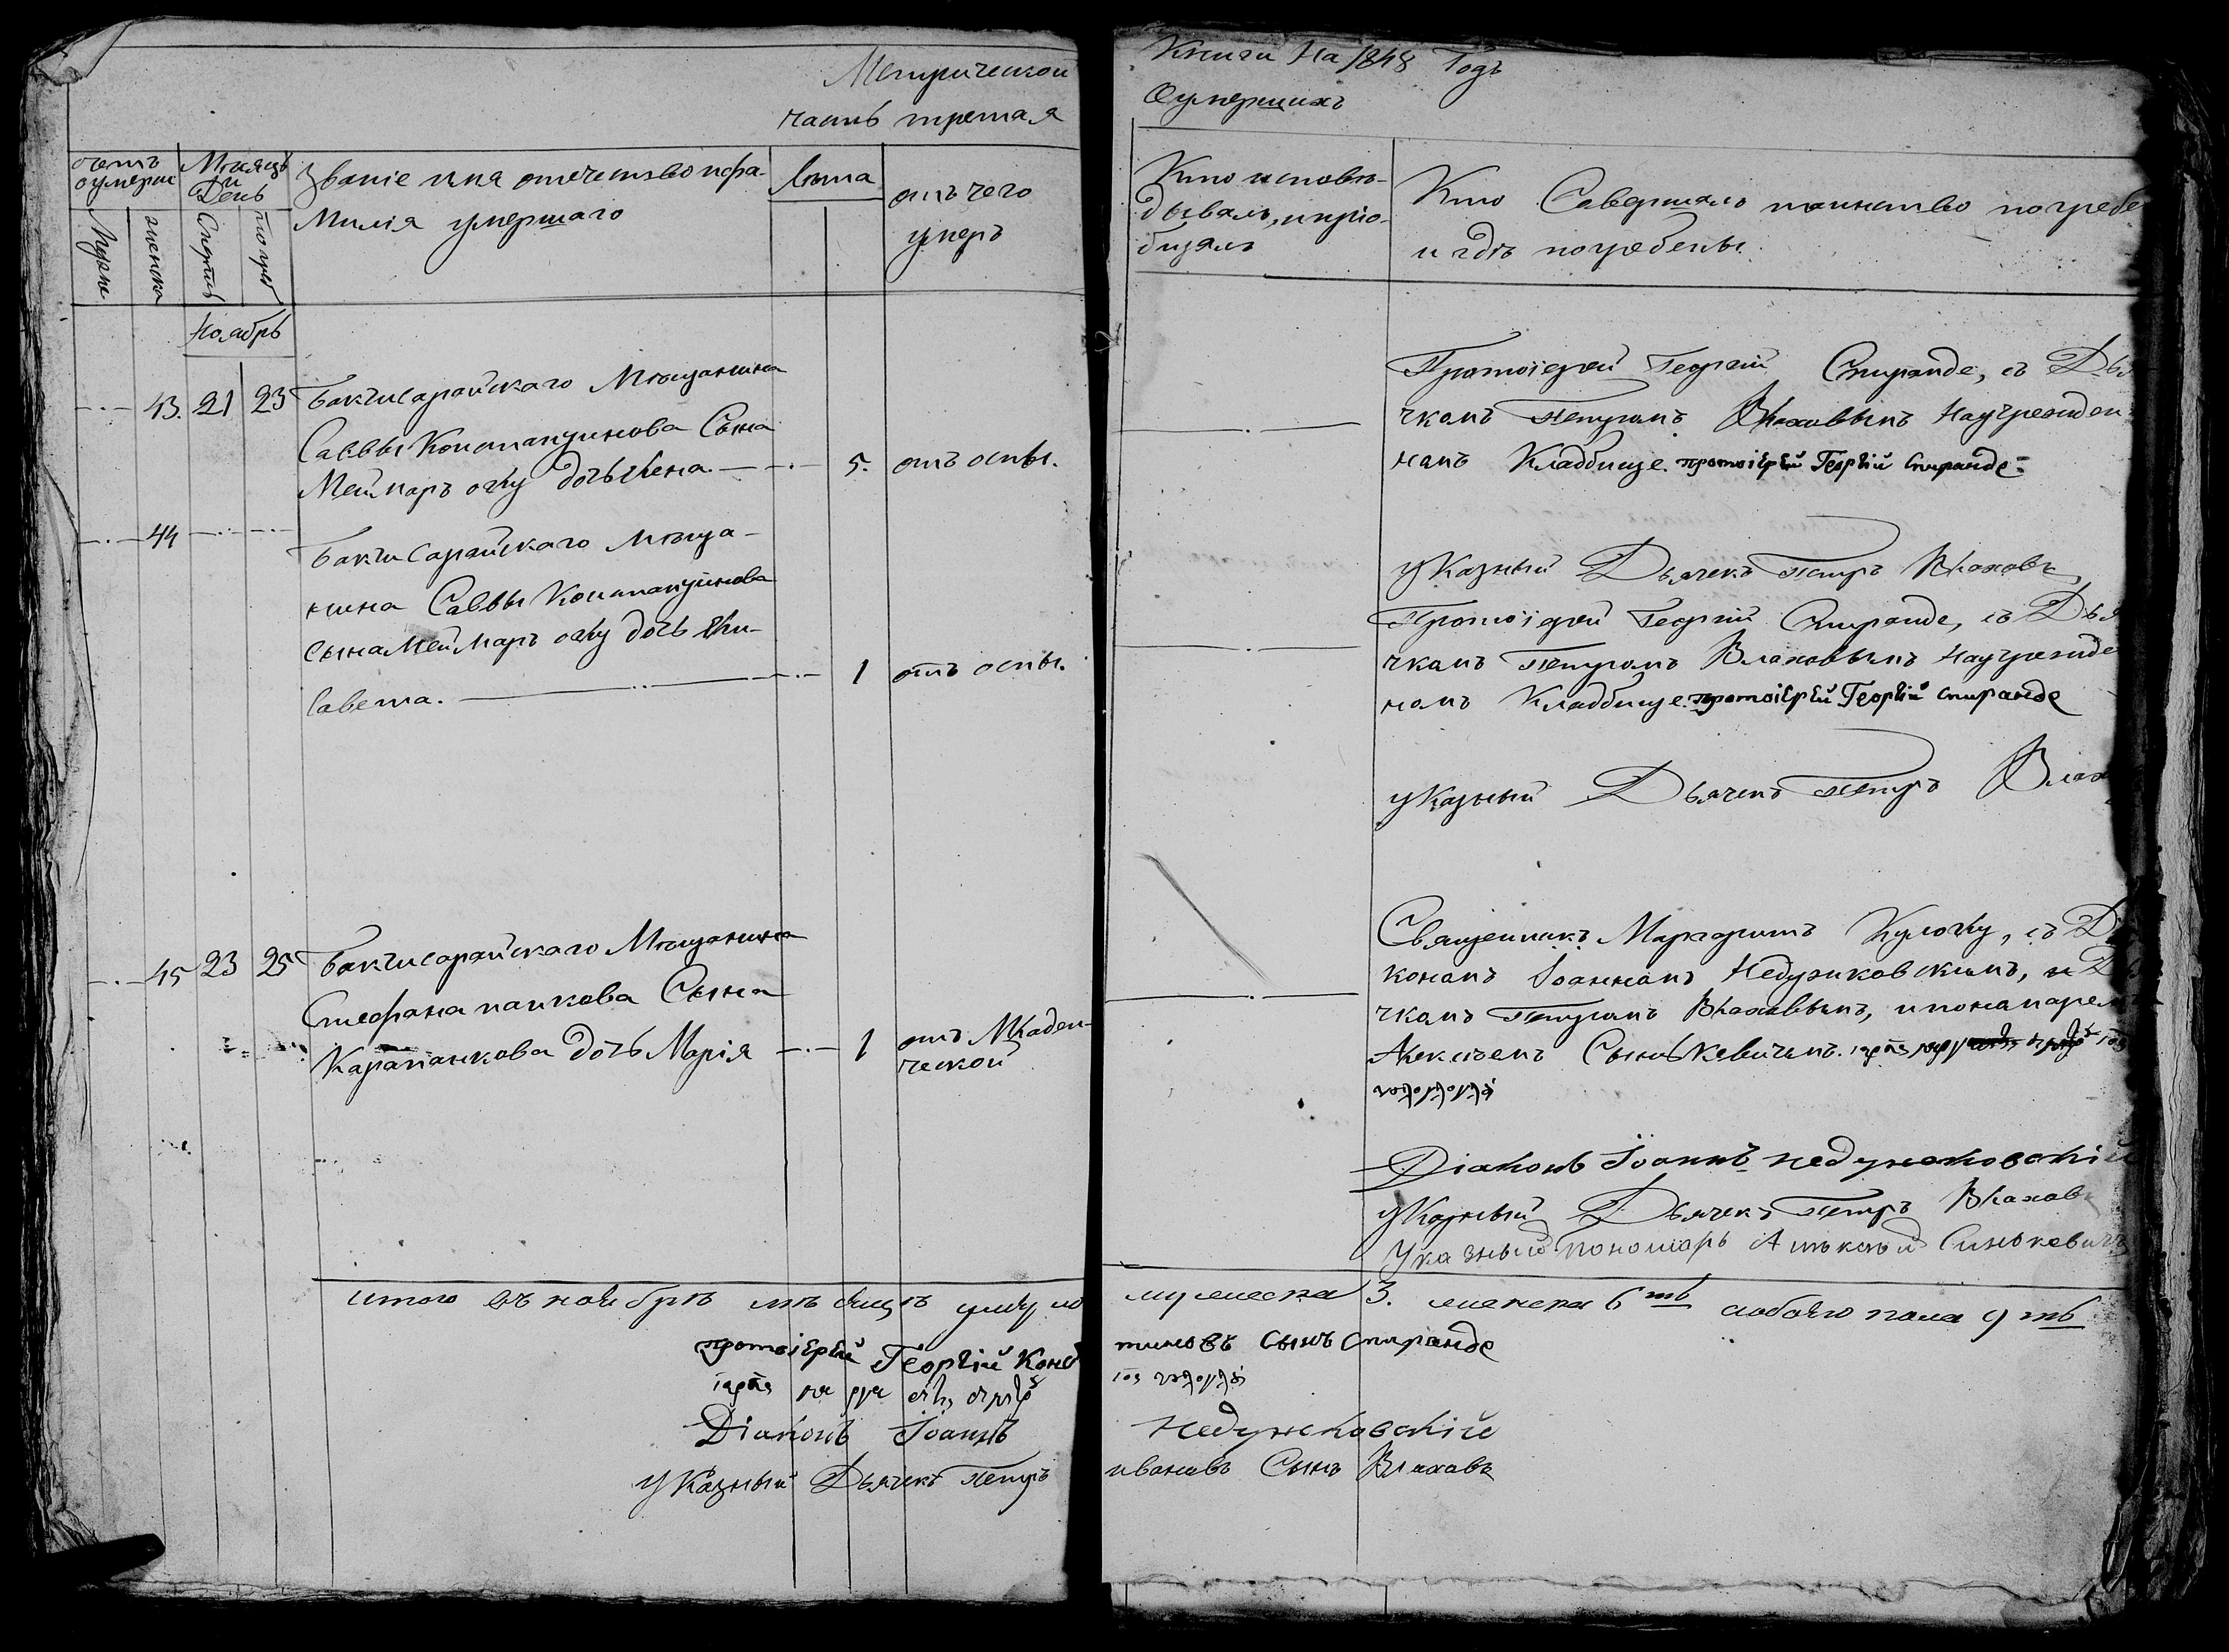 Метрической
часть третая
Книги На 1848 Годъ
О умершихъ
счетъ умерш
Мѣсяцъ и День
Званіе имя отечество и фа-
милія умершаго
Лѣта
отъ чего
умеръ
Кто исповѣ-
дывалъ, и пріо-
бщалъ
Кто Совершалъ таинство погребе
и гдѣ погребены.
Мужес
женска
Смерти
погреб
Ноябрь
43. 21 23 Бакчисарайскаго Мѣщанина
Саввы Константинова Сына
Меймаръ оглу дочь Елена. 5. отъ оспы.
Протоіерей Георгій Спиранде, съ Дья
чкомъ Петромъ Влаховымъ На учрежден
номъ Кладбище. протоіерей Георгій Спиранде
указный Дьячекъ Петръ Влаховъ
44 Бакчисарайскаго Мѣща-
нина Саввы Константинова
сына Меймаръ оглу дочь Ели-
савета. 1 отъ оспы.
Протоіерей Георгій Спиранде, съ Дья
чкомъ Петромъ Влаховымъ На учрежде
номъ Кладбище. протоіерей Георгій спиранде
указный Дьячекъ Петръ Влах
45 23 25 Бакчисарайскаго Мѣщанина
Стефана панкова Сына
Карапанкова дочь Марія 1 отъ Младен-
ческой
Священникъ Маргаритъ Кулоглу, съ Ді
кономъ Іоанномъ Недзѣлковскимъ, и Дья
чкомъ Петромъ Влаховымъ, и пономарем
Алексѣемъ Синькевичемъ.
Діаконъ Іоаннъ
указный Дьячекъ Петръ Влаховъ
Указный пономарь Алексѣй Синькевичъ
итого въ ноябрѣ мѣсяцѣ умерло
мужеска 3. женска 6ть обоего пола 9ть
протоіерей Георгій Конст
тиновъ сынъ Спиранде
Діаконъ Іоаннъ
указный Дьячекъ Петръ
ивановъ Сынъ Влаховъ